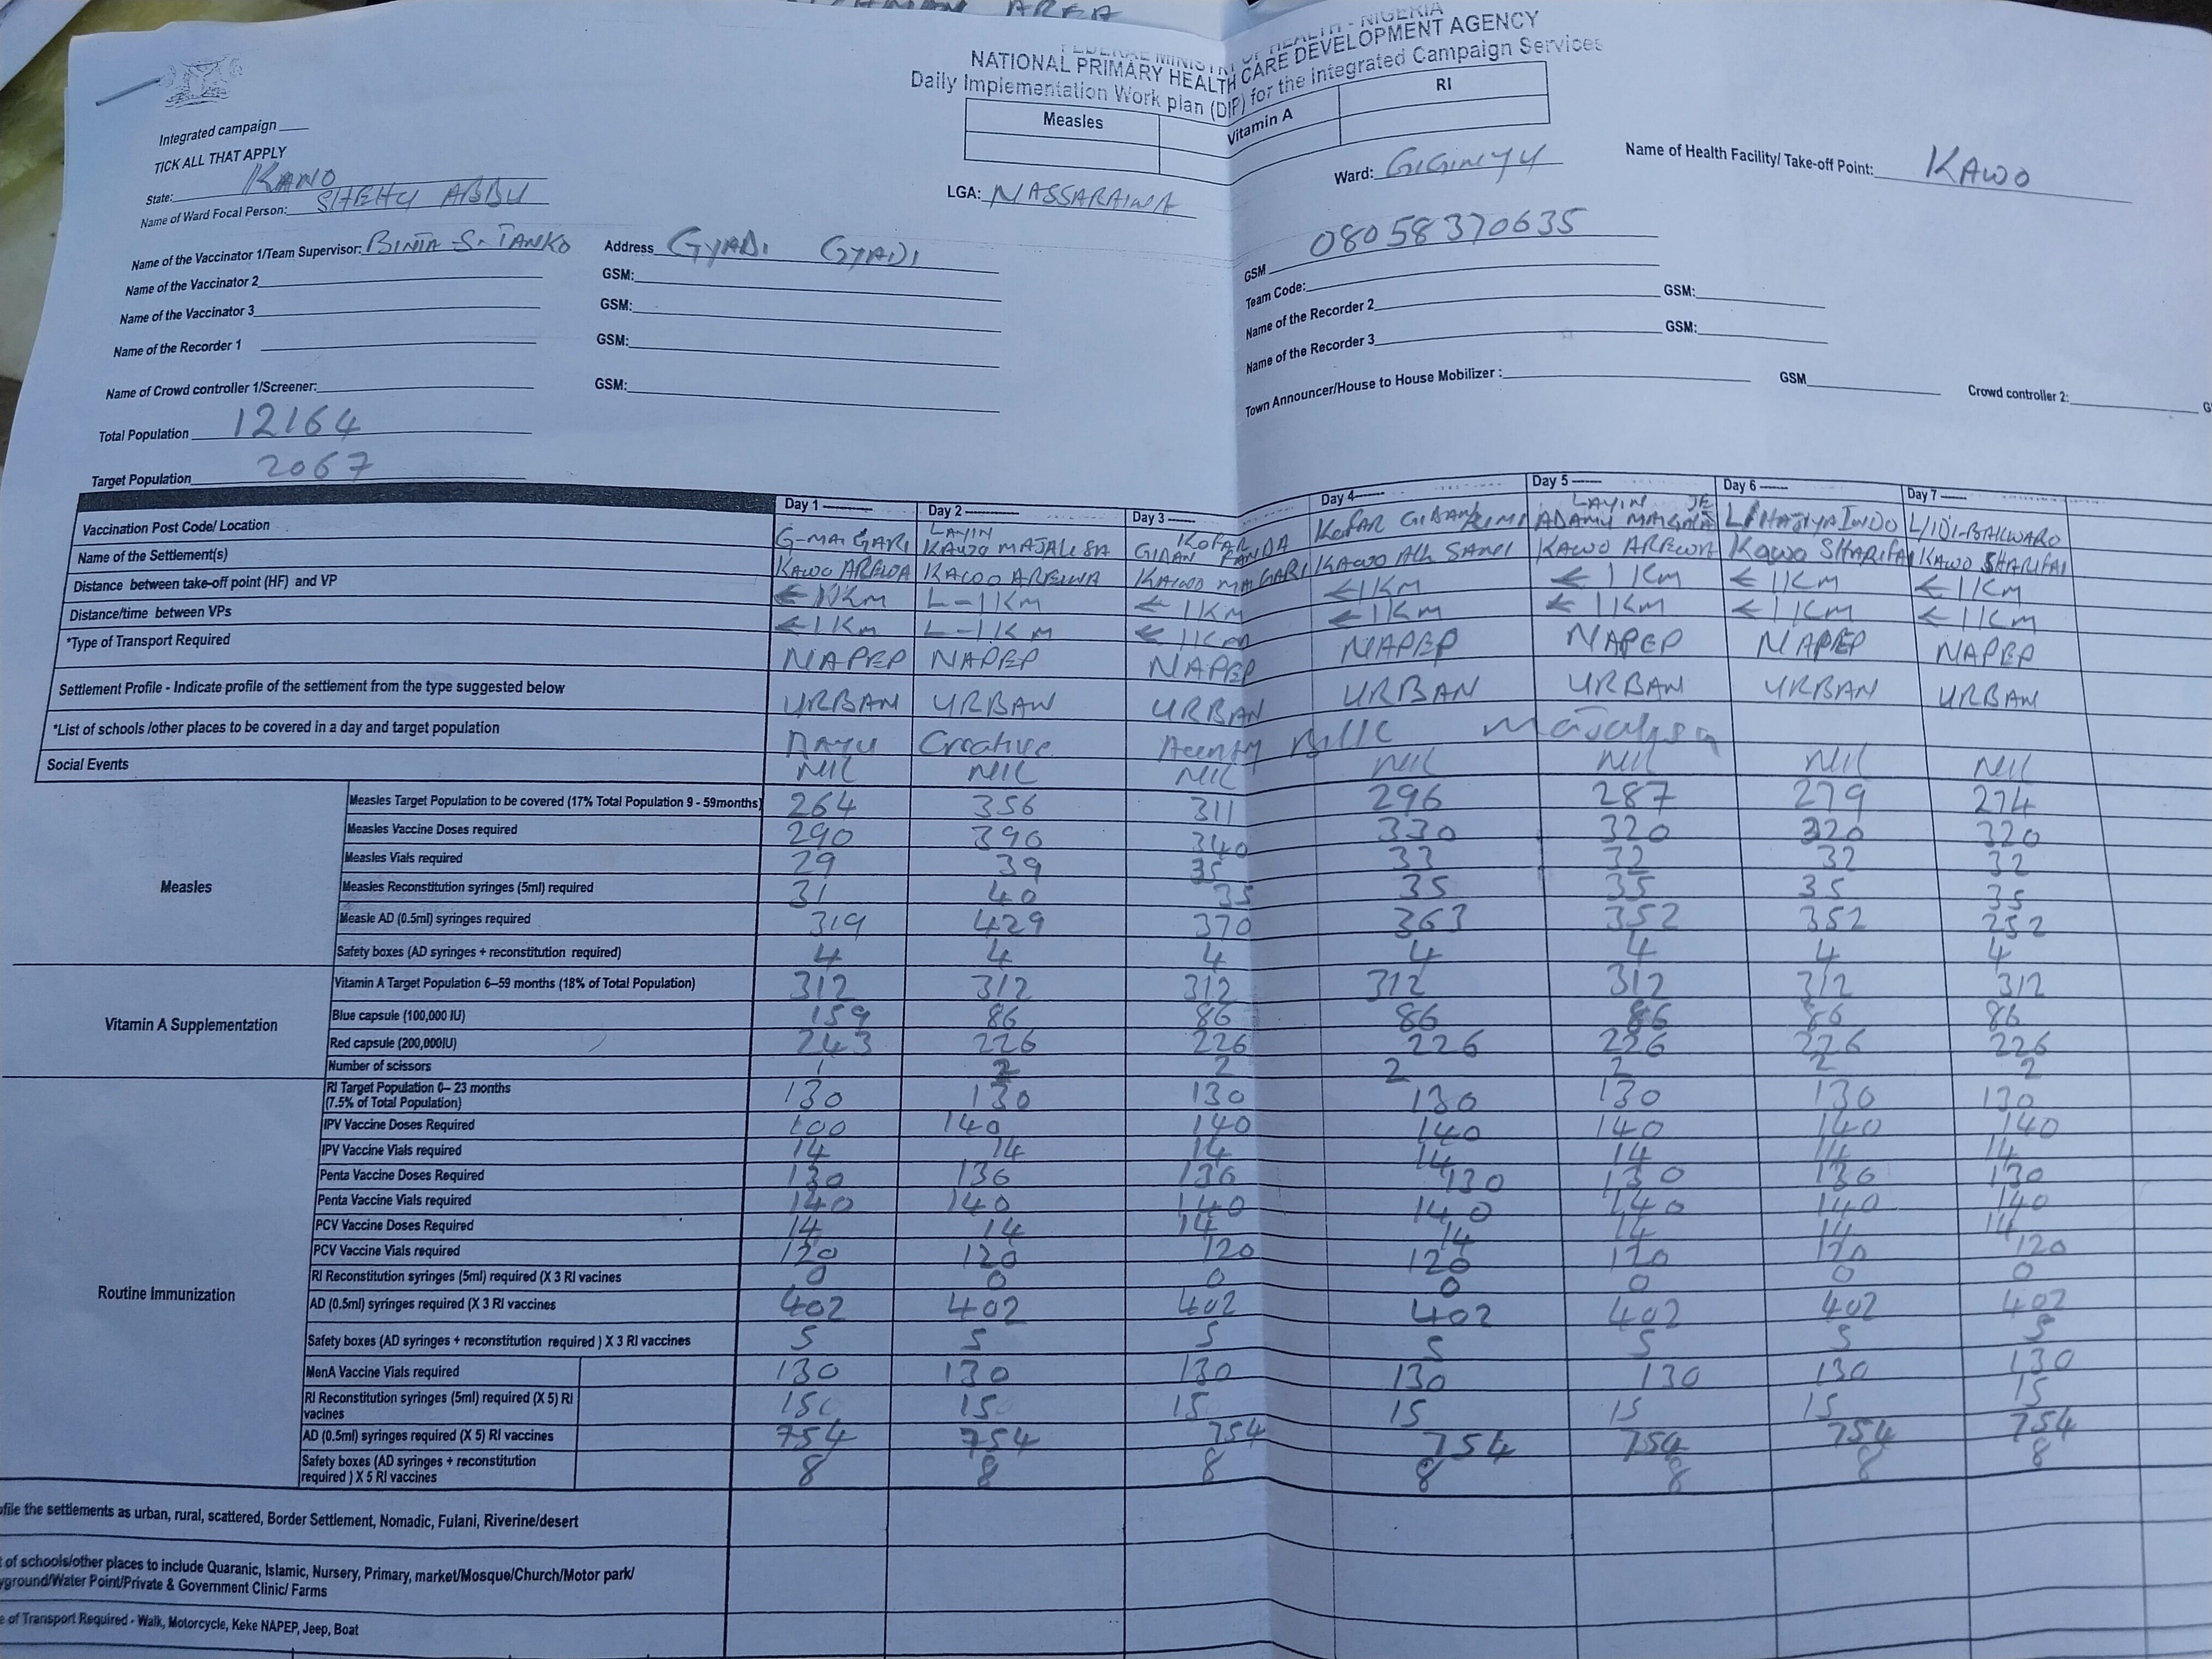 NATIONAL PRIMARY HEALTH CARE DEVELOPMENT AGENCY
Daily Implementation Work plan (DIP) for the Integrated Campaign Services
Integrated campaign
TICK ALL THAT APPLY
Measles Vitamin A RI
State: KANO LGA: NASSARAWA Ward: GIGINYU Name of Health Facility/ Take-off Point: KAWO
Name of Ward Focal Person: SHEHU ABBU
Name of the Vaccinator 1/Team Supervisor: BINTA S. TANKO Address GYADI GYADI GSM 08058370635
Name of the Vaccinator 2 GSM: Team Code:
Name of the Vaccinator 3 GSM: Name of the Recorder 2 GSM:
Name of the Recorder 1 GSM: Name of the Recorder 3 GSM:
Name of Crowd controller 1/Screener: GSM: Name of the Recorder Town Announcer/House to House Mobilizer: GSM Crowd controller 2:
Total Population 12164
Target Population 2067
Day 1 Day 2 Day 3 Day 4 Day 5 Day 6 Day 7
Vaccination Post Code/ Location G-MAI GARI LAYIN KAUJO MAJALISA KOFAR GIDAN KOFAR GIDAN LAYIN ADAMU
Name of the Settlement(s) KAWO AREWA KAWO AREWA KAWO MAI GARI KAWO ALH SANI KAWO AREWA KAWO SHARIFAI KAWO SHARIFAI
Distance between take-off point (HF) and VP < 1KM L-1KM < 1KM < 1KM < 1KM < 1KM < 1KM
Distance/time between VPs < 1KM L-1KM < 1KM < 1KM < 1KM < 1KM < 1KM
*Type of Transport Required NAPEP NAPEP NAPEP NAPEP NAPEP NAPEP NAPEP
Settlement Profile - Indicate profile of the settlement from the type suggested below URBAN URBAN URBAN URBAN URBAN URBAN URBAN
*List of schools /other places to be covered in a day and target population Creative
Social Events NIL NIL NIL NIL NIL NIL NIL
Measles
Measles Target Population to be covered (17% Total Population 9 - 59months) 264 356 311 296 287 279 274
Measles Vaccine Doses required 290 390 340 330 320 320 320
Measles Vials required 29 39 35 33 32 32 32
Measles Reconstitution syringes (5ml) required 31 40 35 35 35 35 35
Measle AD (0.5ml) syringes required 319 429 370 363 352 352 252
Safety boxes (AD syringes + reconstitution required) 4 4 4 4 4 4 4
Vitamin A Supplementation
Vitamin A Target Population 6–59 months (18% of Total Population) 312 312 312 312 312 312 312
Blue capsule (100,000 IU) 159 86 86 86 86 86 86
Red capsule (200,000IU) 243 226 226 226 226 226 226
Number of scissors 1 2 2 2 2 2 2
Routine Immunization
RI Target Population 0– 23 months (7.5% of Total Population) 130 130 130 130 130 130 130
IPV Vaccine Doses Required 100 140 140 140 140 140 140
IPV Vaccine Vials required 14 14 14 14 14 14 14
Penta Vaccine Doses Required 130 136 136 130 130 130 130
Penta Vaccine Vials required 140 140 140 140 140 140 140
PCV Vaccine Doses Required 14 14 14 14 14 14 14
PCV Vaccine Vials required 120 120 120 120 120 120 120
RI Reconstitution syringes (5ml) required (X 3 RI vacines 0 0 0 0 0 0 0
AD (0.5ml) syringes required (X 3 RI vaccines 402 402 402 402 402 402 402
Safety boxes (AD syringes + reconstitution required ) X 3 RI vaccines 5 5 5 5 5 5 5
MenA Vaccine Vials required 130 130 130 130 130 130 130
RI Reconstitution syringes (5ml) required (X 5) RI vacines 15 15 15 15 15 15
AD (0.5ml) syringes required (X 5) RI vaccines 754 754 754 754 754 754 754
Safety boxes (AD syringes + reconstitution required ) X 5 RI vaccines 8 8 8 8 8 8 8
file the settlements as urban, rural, scattered, Border Settlement, Nomadic, Fulani, Riverine/desert
of schools/other places to include Quaranic, Islamic, Nursery, Primary, market/Mosque/Church/Motor park/
yground/Water Point/Private & Government Clinic/ Farms
e of Transport Required - Walk, Motorcycle, Keke NAPEP, Jeep, Boat